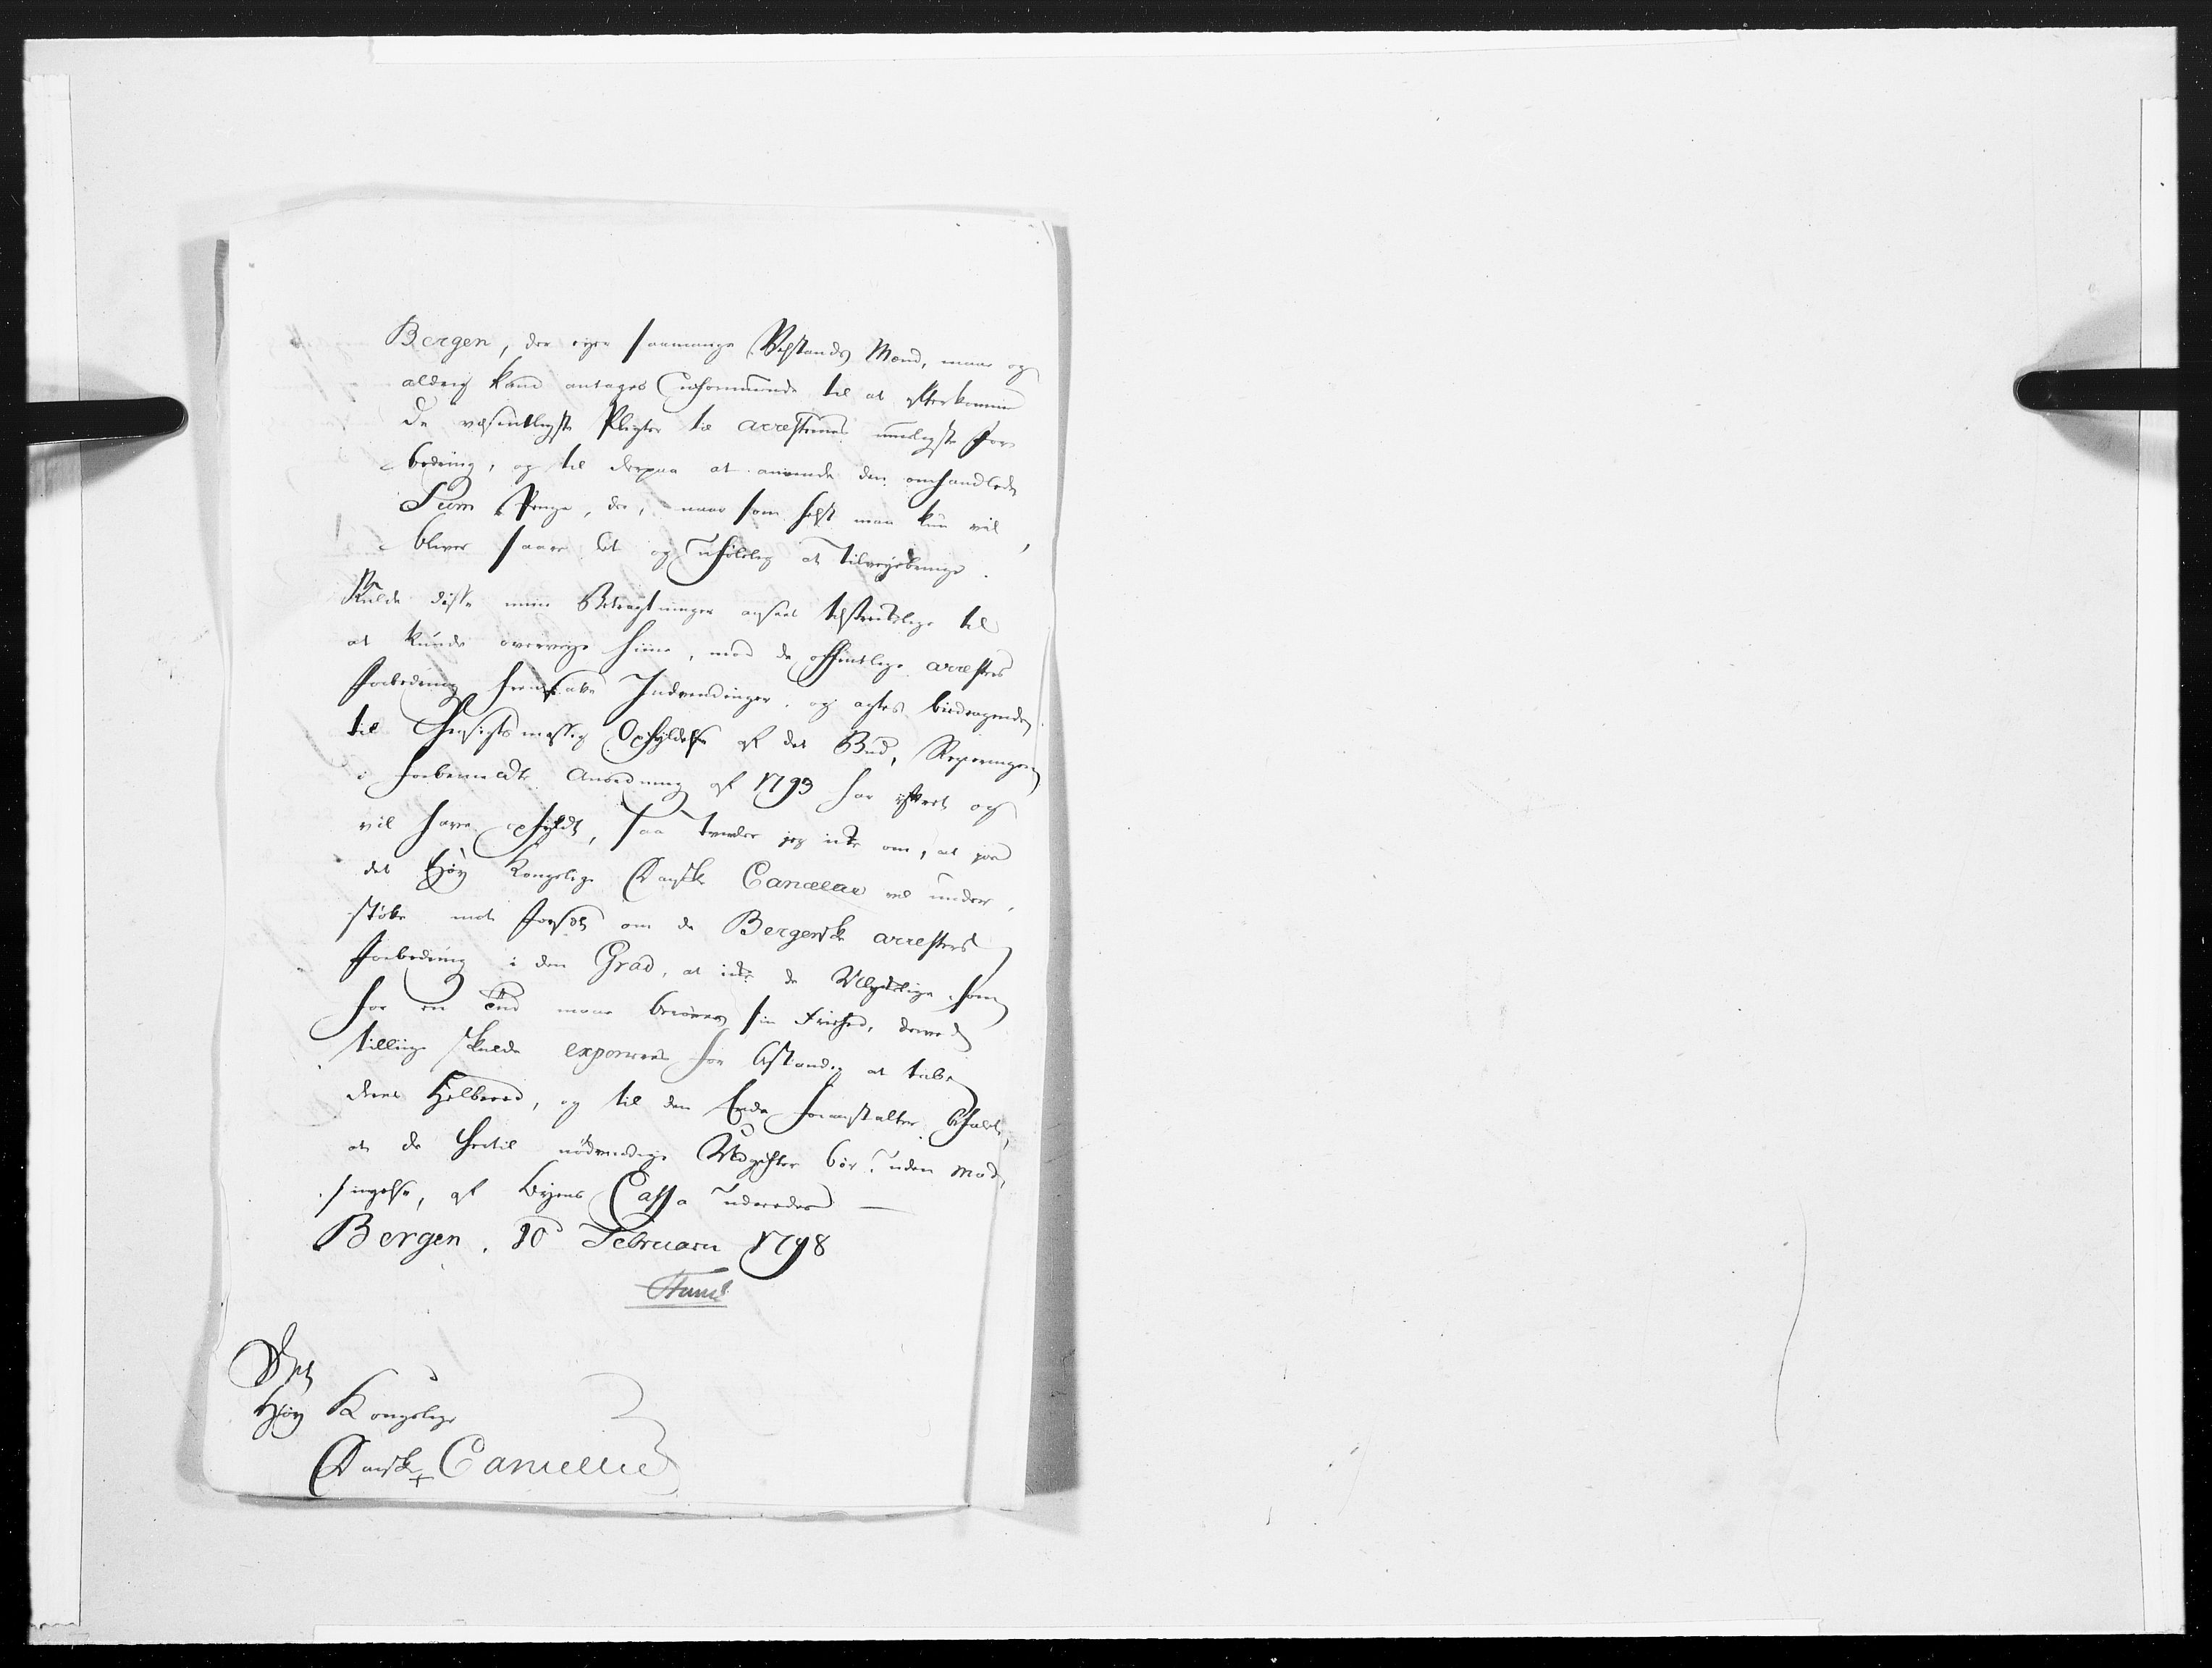 Bergen, der ejer saamange Velstands Mænd, maae og
aldrig kand antages uformuende til at efterkomme
de væsentligste Pligter til arresternes muligste For-
bedring, og til derpaa at anvende den omhandlede
Sum Penge, der, naar som helst man kun vil,
bliver saare let og ufølelig at tilvejebringe.
Skulde disse mine Betragtninger ansees tilstrækkelige til
at kunde overveje hine, mod de offentlige arresters
Forbedring fremsatte Indvendinger, og agtes bidragende
til Hensigtsmæssig Opfyldelse af det Bud, Regieringen
i forbemeldte Anordning af 1793 har yttret og
vil have opfyldt, saa tvivler jeg ikke om, at jo
det Høy Kongelige Danske Cancelie vil under-
støtte mit Forslag om de Bergenske arresters
Forbedring i den Grad, at ikke de Ulykkelige som
for en Tid maae berøves sin Friehed, derved
tillige skulde exponeres for bestandig at tabe
deres Helbred, og til den Ende foranstalter befalet,
at de hertil nødvendige Udgifter bør, uden Mod-
sigelse, af Byens Cassa udredes —
Bergen, 10 Februarii 1798
Det
Høy Kongelige
Danske Cancellie